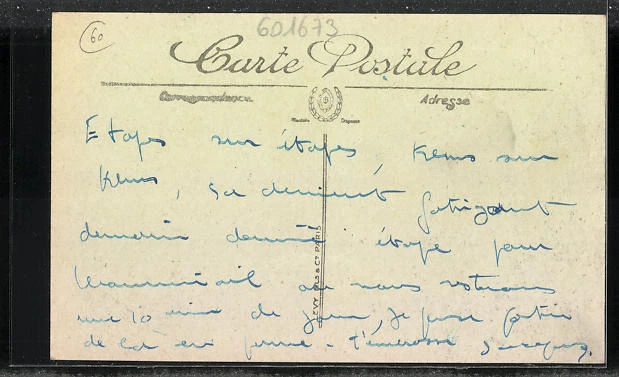 60
601673
Carte Postale
Correspondance
Adresse
Etapes sur étapes, Kms sur
Kms, ça devient fatigant
demain dernière étape pour
où nous resterons
une 10 aine de jours, Je pense partir
de là en perme - t'embrasse Jacques.
LEVY FILS & Cie PARIS